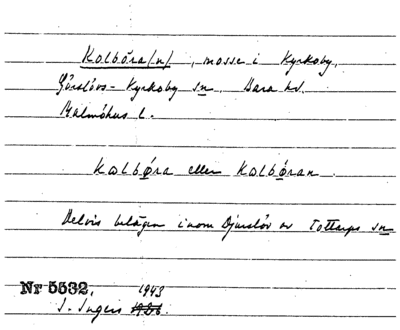 Kolbôra(n), mosse i Kyrkoby,
Görslövs-Kyrkoby sn. Bara hd.
Malmöhus l.
Kolbøra eller Kolbøran.
Delvis belägen inom Djurslöv av Tottarps sn
Nr 5532. 1943
J. Ingers 1926.